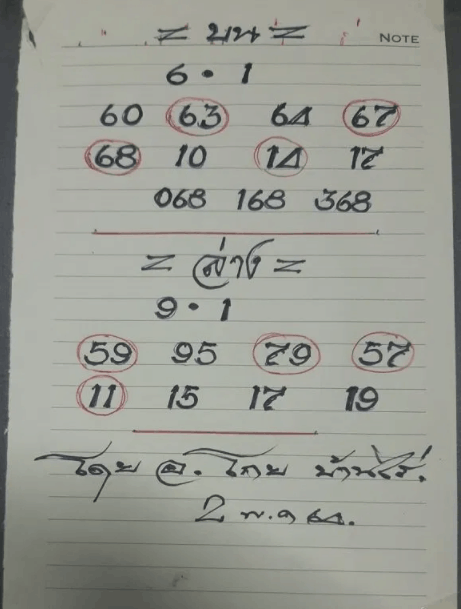 NOTE
= บน =
6 · 1
60 63 64 67
68 10 14 17
068 168 368
= ล่าง =
9 · 1
59 95 79 57
11 15 17 19
โดย อ. โกย บ้านไร่.
2 พ.ค 64.